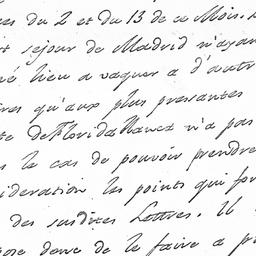 es du 2 et du 13 de ce Mois. 
rt sejour de Madrid n'ayan
né lieu a vaquer a d'autr
res qu'aux plus pressantes
te de Florida Blanca n'a pas
s le cas de pouvoir prendre
sideration les points qui for
des susdites Lettres. Il
pose donc de le faire a pr